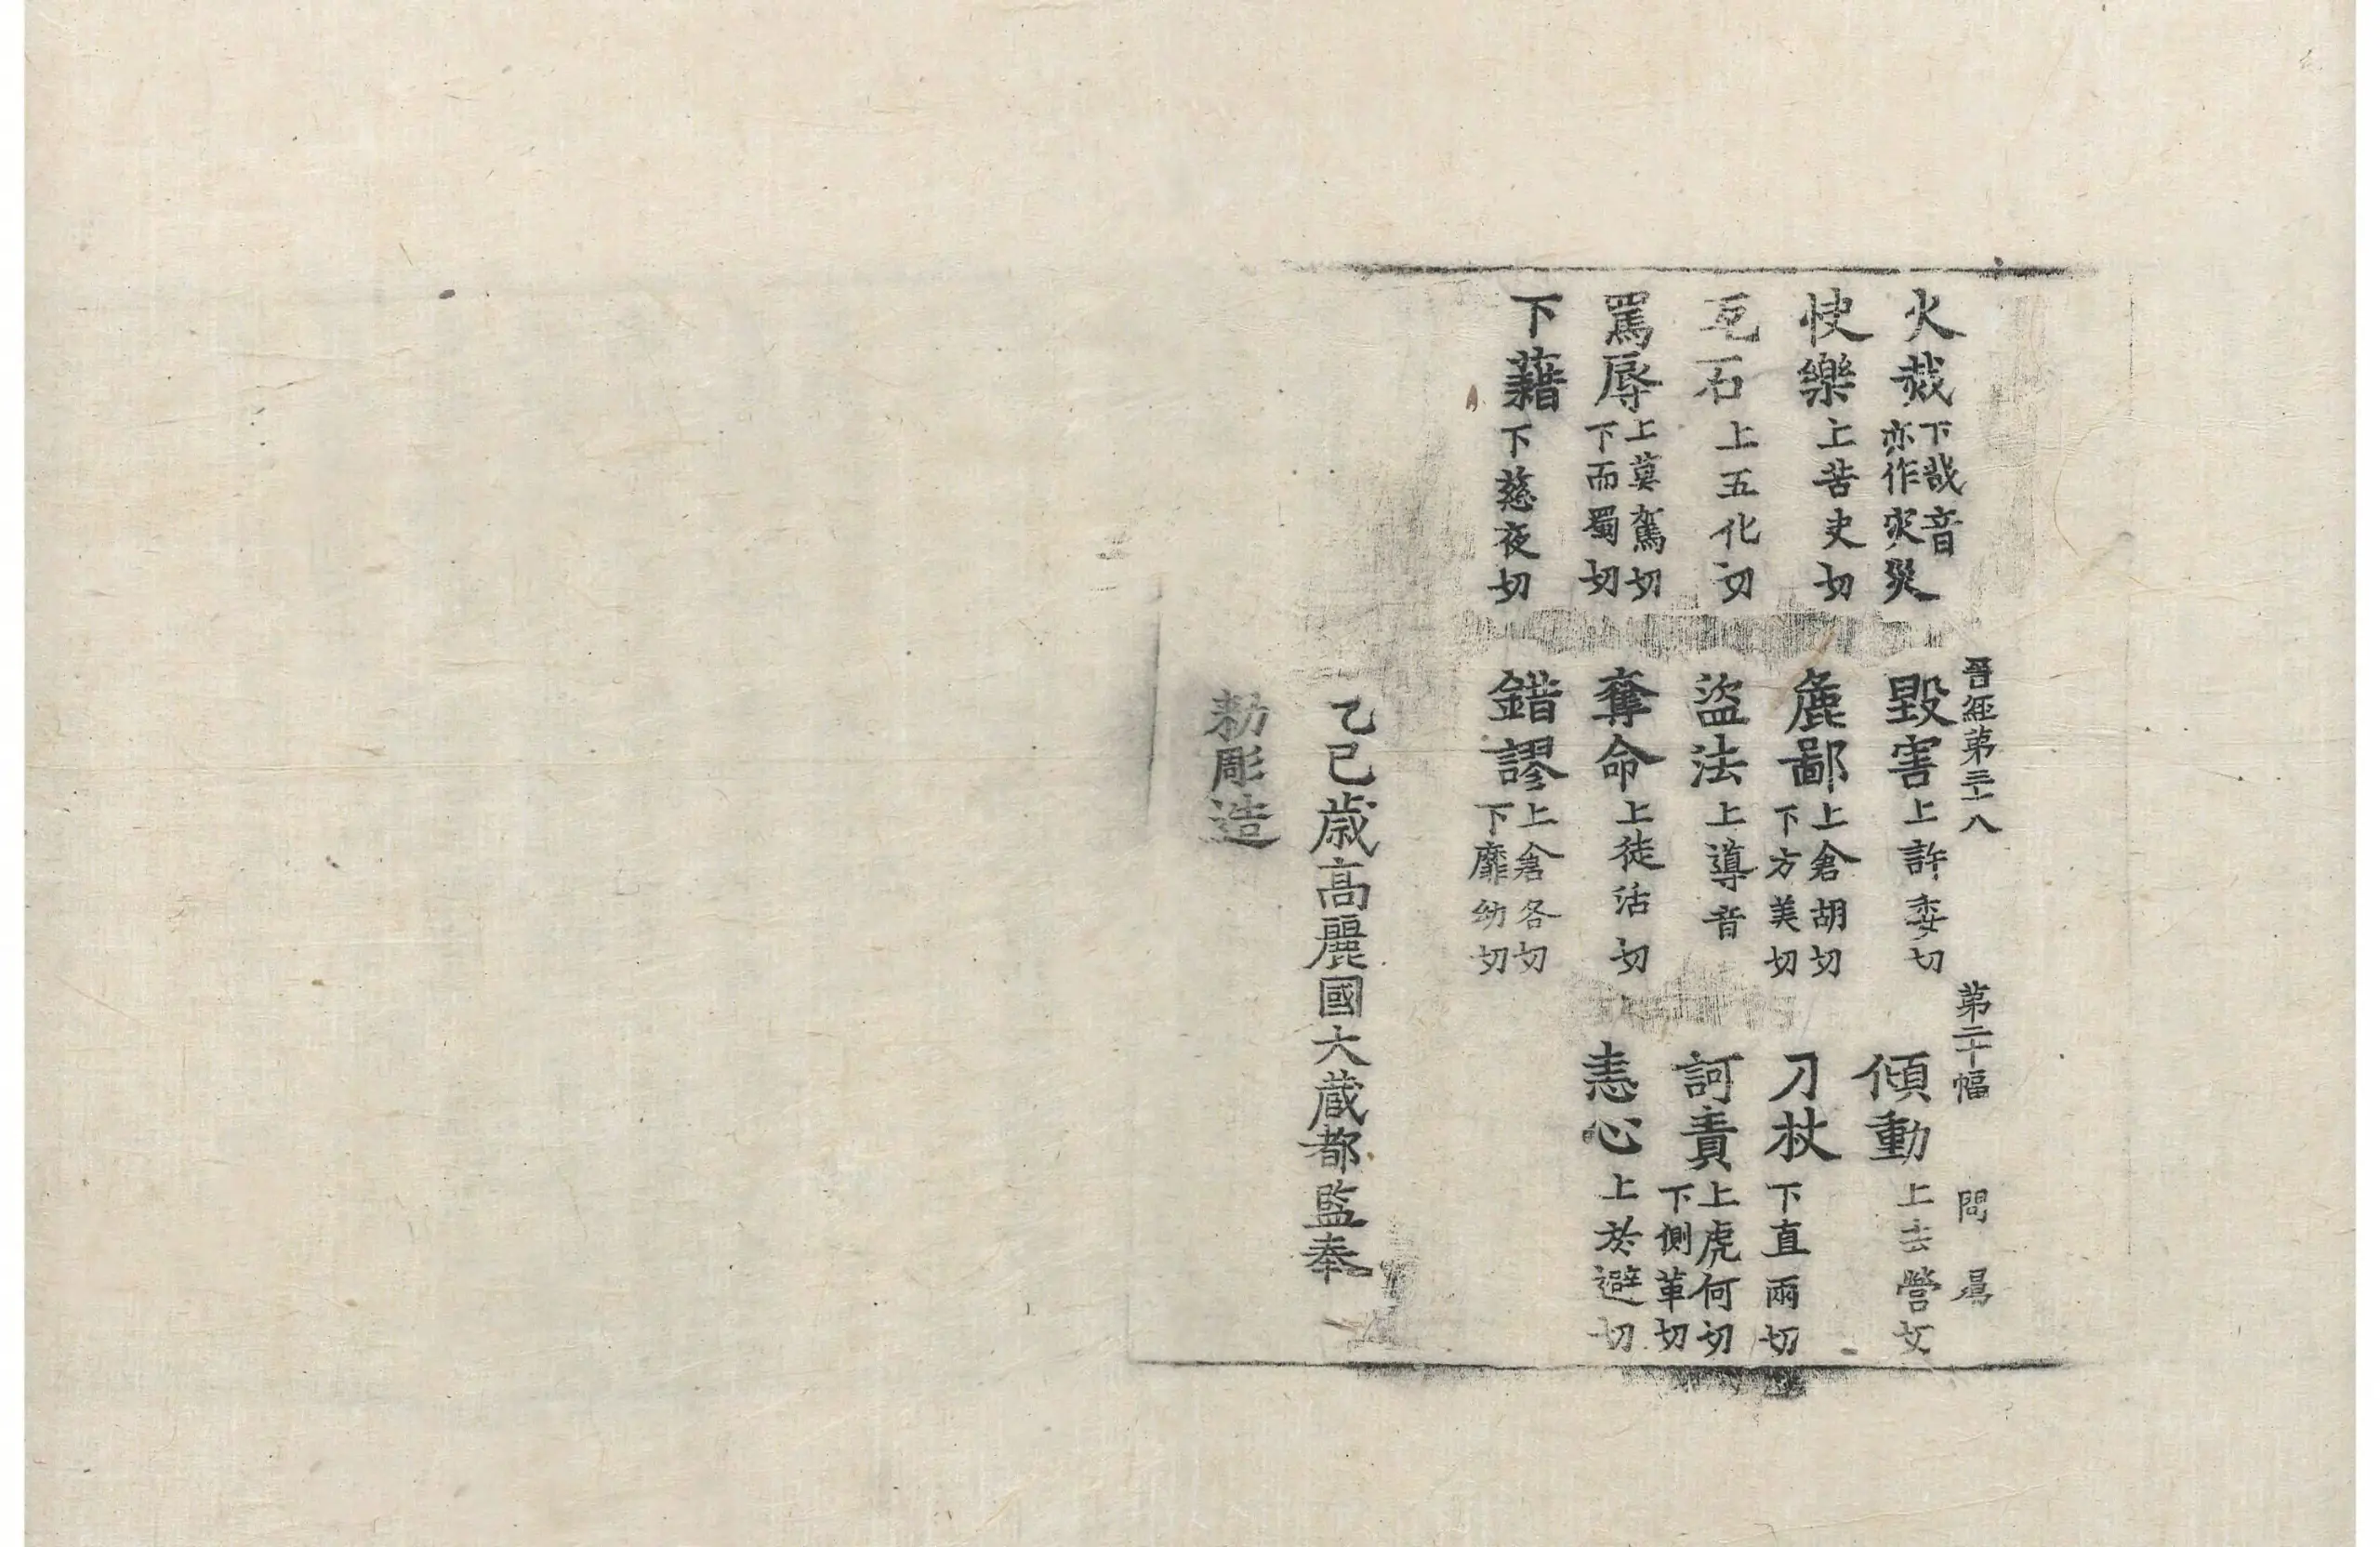 晉經第三十八 第二十幅 問 昜
火烖下哉音亦作灾災 毀害上許委切 傾動上去營切
快樂上苦夬切 麁鄙上倉胡切下方美切 刀杖下直兩切
瓦石上五化切 盜法上導音 訶責上虎何切下側革切
罵辱上莫駕切下而蜀切 奪命上徒活切 恚心上於避切
下藉下慈夜切 錯謬上倉各切下靡幼切
乙巳歲高麗國大藏都監奉
勅彫造